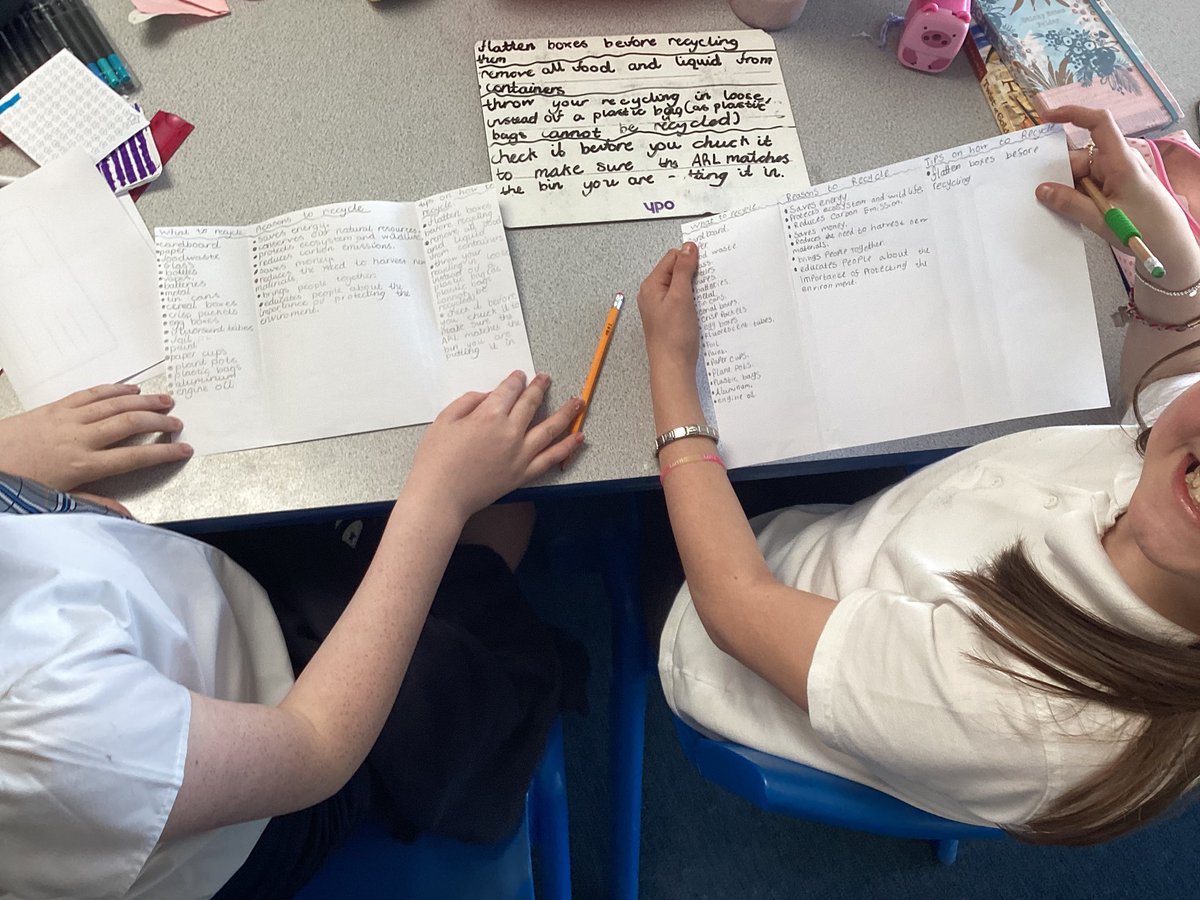 flatten boxes before recycling
them
remove all food and liquid from
containers
throw your recycling in loose,
instead of a plastic bag (as plastic
bags cannot be recycled)
check it before you chuck it
to make sure the ARL matches
the bin you are - ting it in.
ypo
What to recycle
cardboard
paper
foodwaste
glass
bottles
vapes
batteries
metal
tin cans
cereal boxes
crisp packets
egg boxes
fluoresend tubes
foil
paint
paper cups
plant pots
plastic bags
aluminum
engine oil
Reasons to recycle
saves energy
conserves natural resources
protects ecosystem and wildlife
reduces carbon emissions.
saves money
reduces the need to harvest new
materials
brings people together
educates people about the
importance of protecting the
enviroment.
tips on how to
recycle
flatten boxes
before recycling
remove all food
and liquid
from containers
throw your
recycling in
loose instead of
plastic bags
check before
you chuck to
make sure the
ARL matches the
bin you are
putting it in
What to recycle
metal
tin cans.
cereal boxes.
crisp packets
egg boxes
fluorescent tubes.
Foil
Paint.
Paper cups.
Plant pots.
Plastic bags
Aluminum.
engine oil
Reasons to Recycle
Saves energy
Protects ecosystem and wild life.
Reduces Carbon Emission.
Saves money.
Reduces the need to harvest new
materials.
brings People together
educates People about the
importance of Protecting the
environment.
Tips on how to Recycle
flatten boxes before
recycling